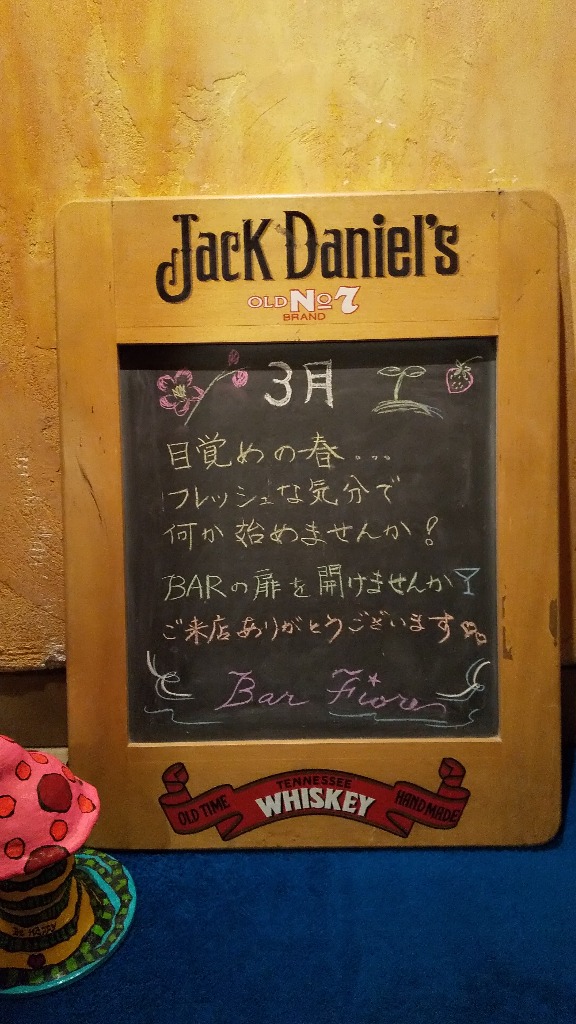 Jack Daniel's
OLD No 7
BRAND
3月
目覚めの春...
フレッシュな気分で
何か始めませんか!
BARの扉を開けませんか
ご来店ありがとうございます
Bar Fiore
TENNESSEE
OLD TIME WHISKEY HAND MADE